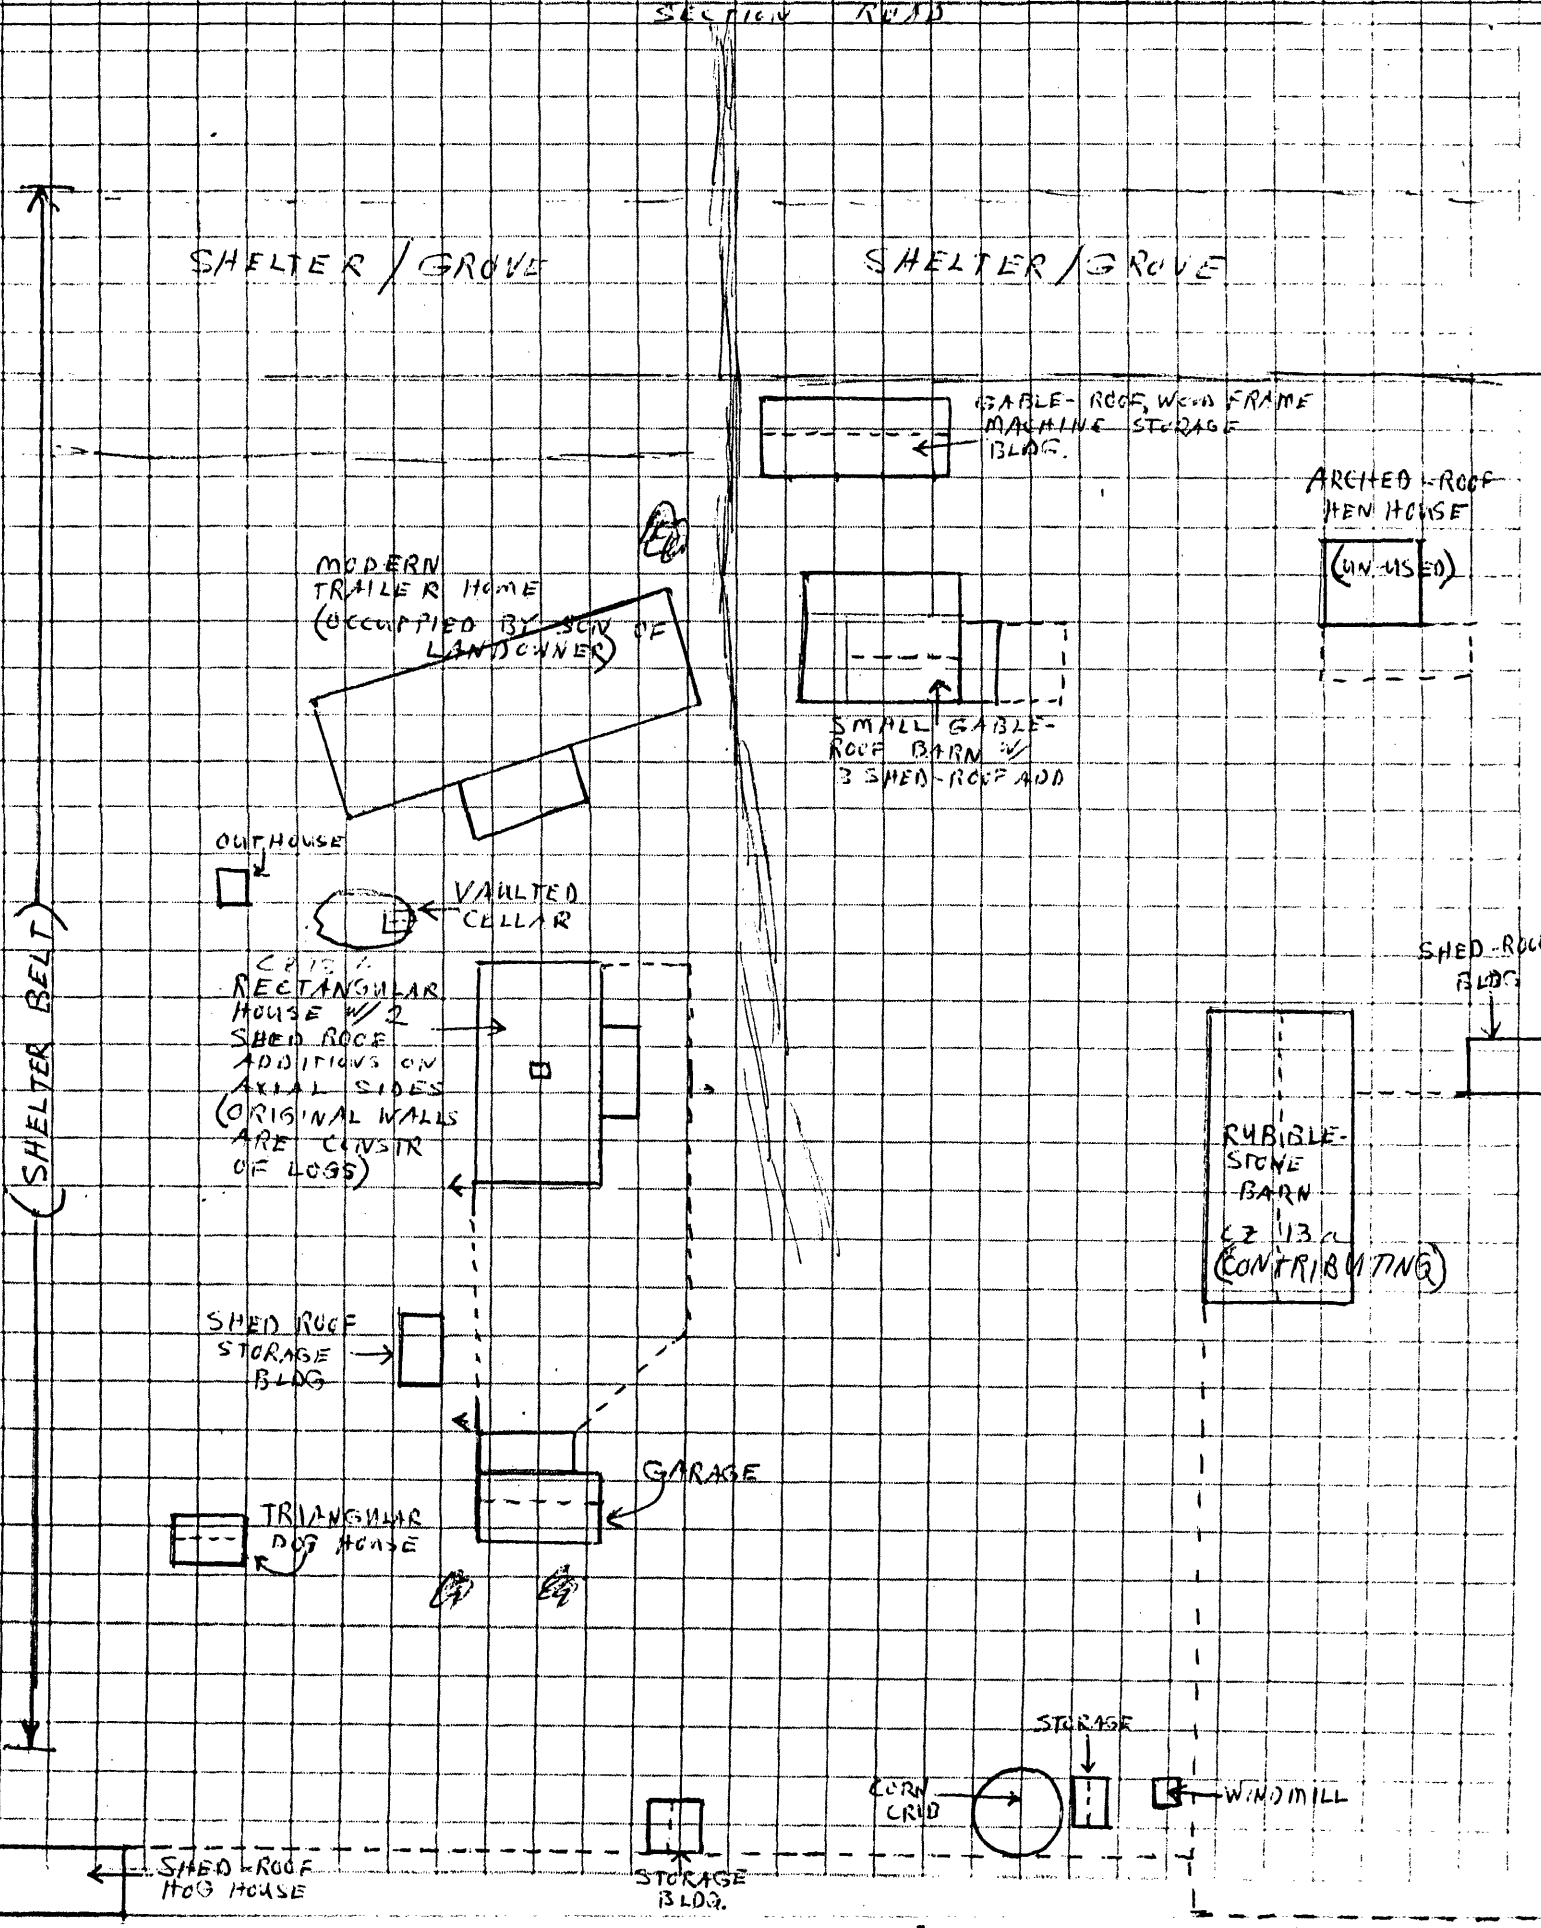 SECTION ROAD
SHELTER / GROVE
SHELTER / GROVE
GABLE-ROOF, WOOD FRAME
MACHINE STORAGE
BLDG.
ARCHED-ROOF
HEN HOUSE
(UN-USED)
MODERN
TRAILER HOME
(OCCUPPIED BY SON OF
LANDOWNER)
SMALL GABLE-
ROOF BARN W/
3 SHED-ROOF ADD
OUTHOUSE
VAULTED
CELLAR
(SHELTER BELT)
RECTANGULAR
HOUSE W/ 2
SHED ROOF
ADDITIONS ON
AXIAL SIDES
(ORIGINAL WALLS
ARE CONSTR
OF LOGS)
SHED-ROOF
BLDG
RUBIBLE-
STONE
BARN
CZ 13a
(CONTRIBUTING)
SHED ROOF
STORAGE
BLDG
GARAGE
TRIANGULAR
DOG HOUSE
STORAGE
CORN
CRIB
WINDMILL
SHED-ROOF
HOG HOUSE
STORAGE
BLDG.